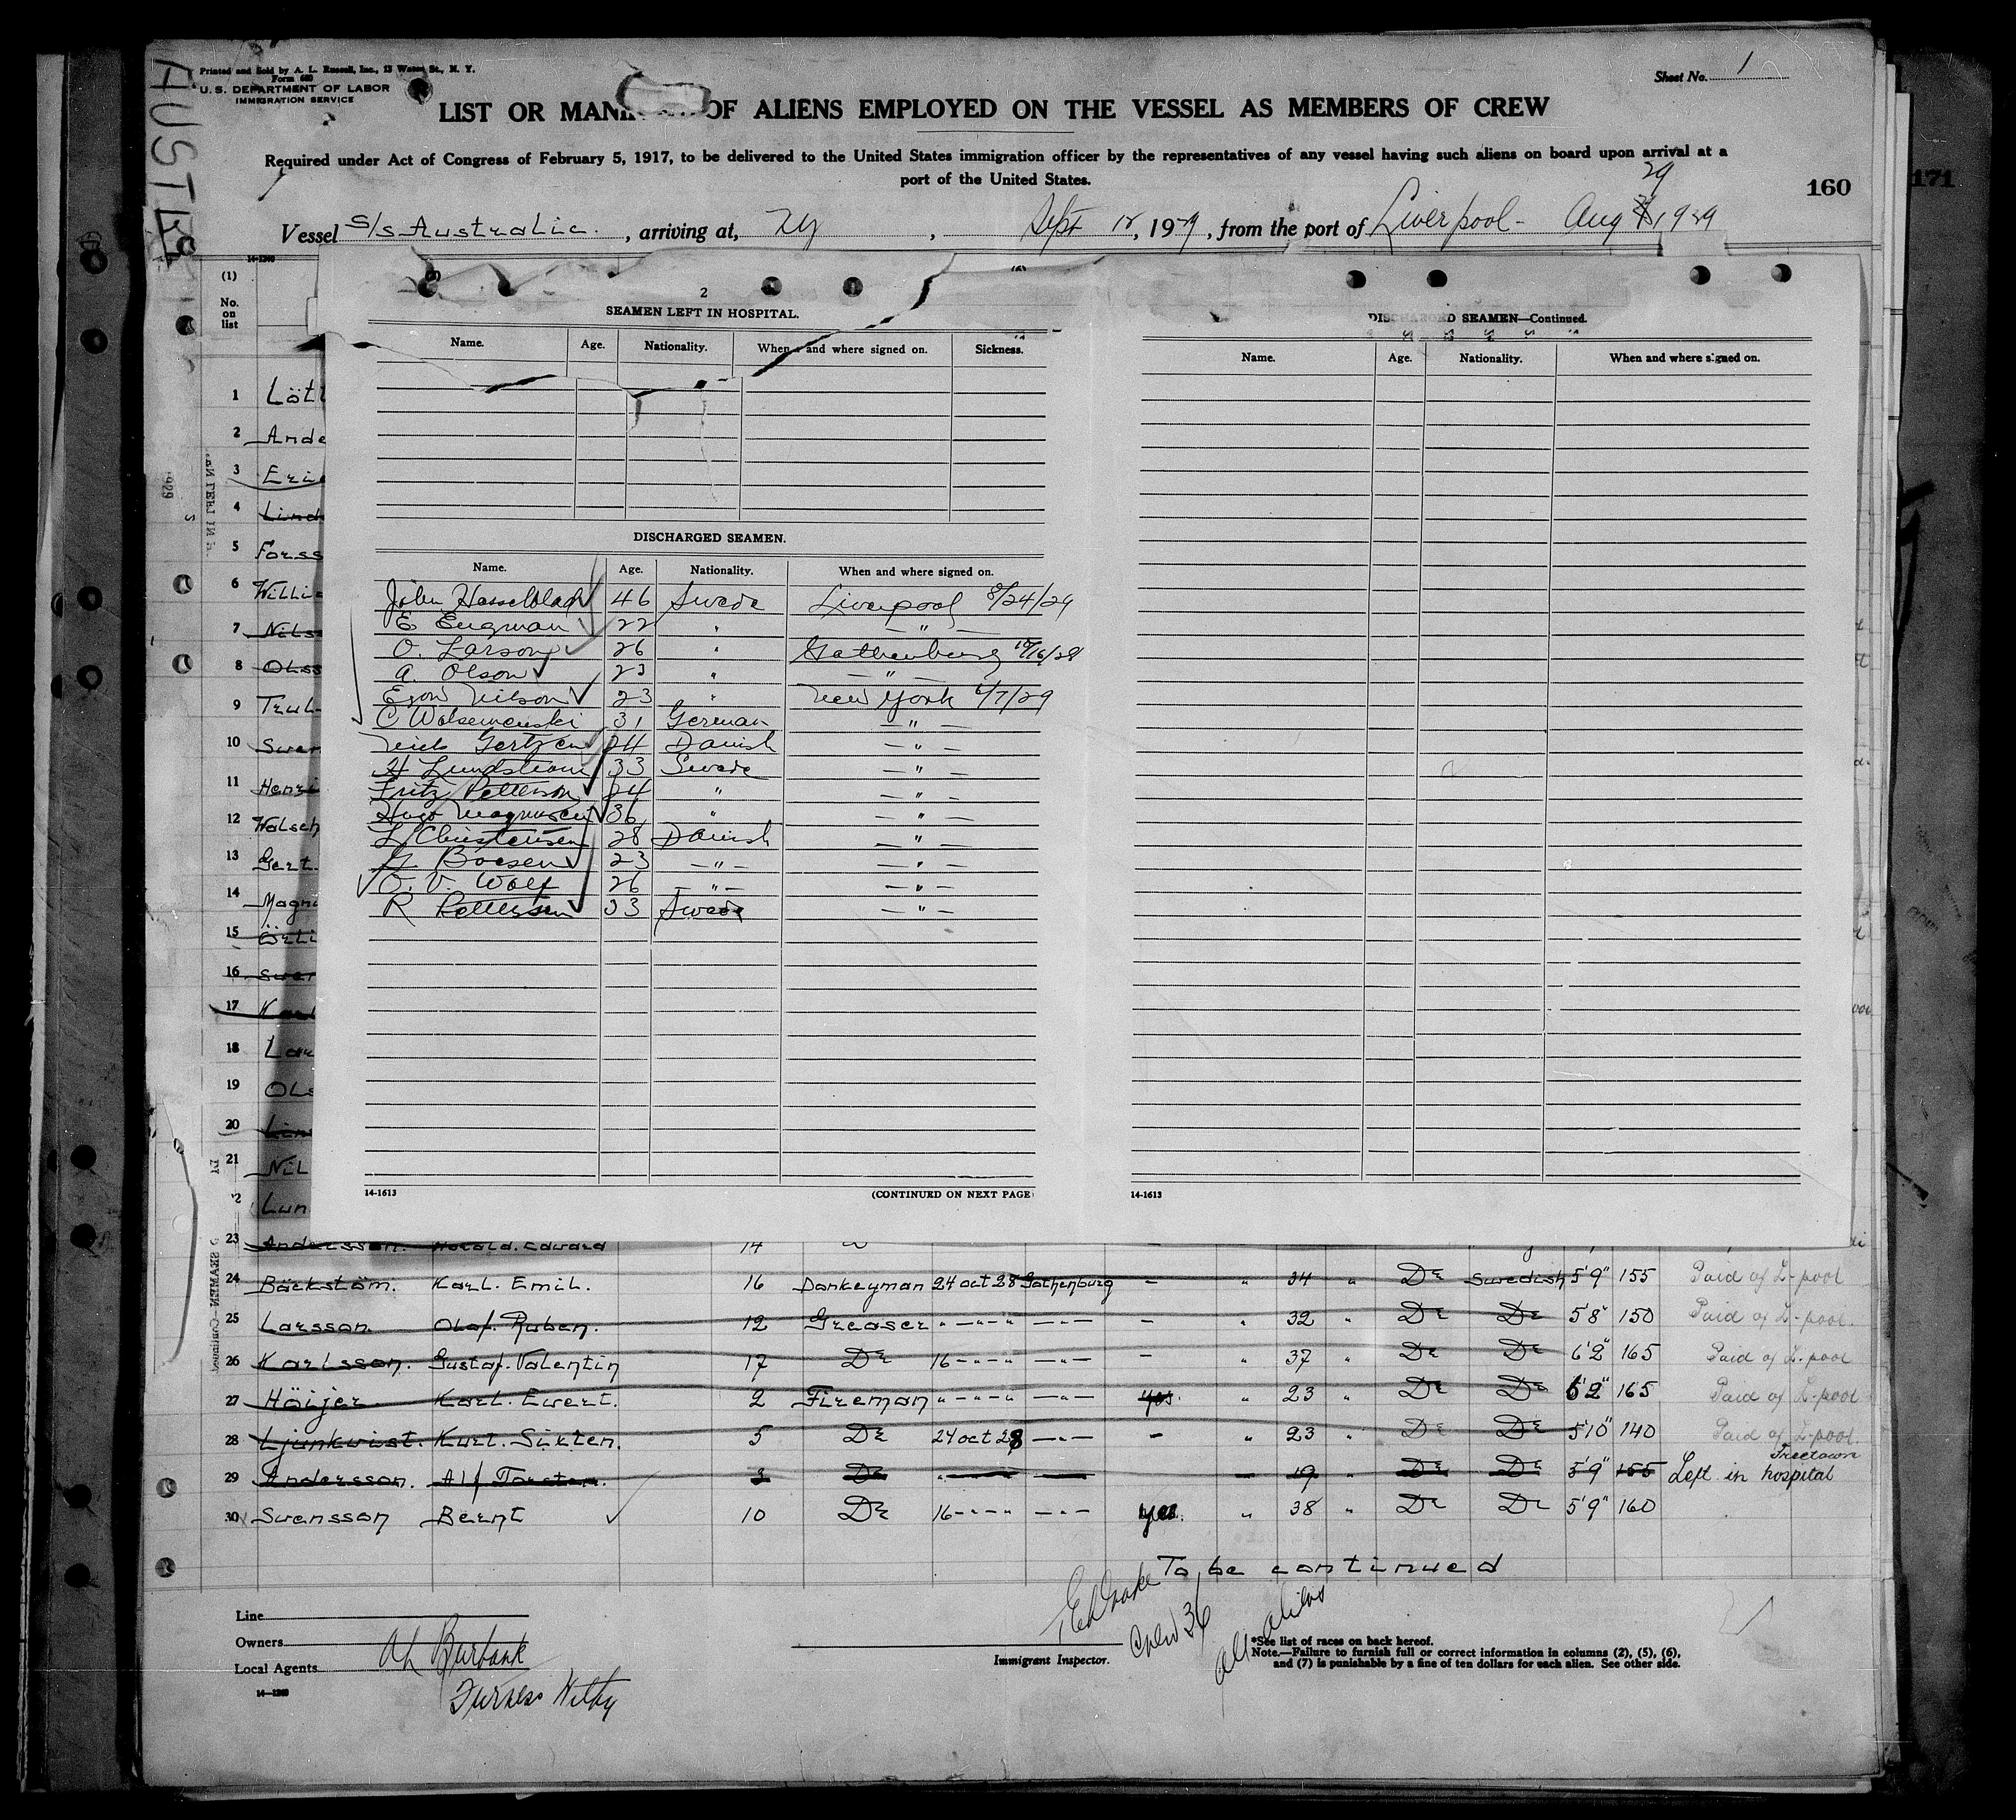 Printed and Sold by A. L. Russell, Inc., 13 Water St., N. Y.
Form 680
U. S. DEPARTMENT OF LABOR
IMMIGRATION SERVICE
Sheet No. 1
LIST OR MANI OF ALIENS EMPLOYED ON THE VESSEL AS MEMBERS OF CREW
Required under Act of Congress of February 5, 1917, to be delivered to the United States immigration officer by the representatives of any vessel having such aliens on board upon arrival at a
port of the United States.
29
160
171
Vessel S/S Australia. , arriving at, NY , Sept 12, 1929, from the port of Liverpool - Aug 1929
14-1240
(1)
No. on list
2
SEAMEN LEFT IN HOSPITAL.
Name. Age. Nationality. When and where signed on. Sickness.
DISCHARGED SEAMEN—Continued.
Name. Age. Nationality. When and where signed on.
1 Löt
2 Ande
3 Eri
4 Lind
5 Forss
6 Willi
7 Nils
8 Olss
9 Trul
10 Swen
11 Henr
12 Walsch
13 Gert.
14 Magn
15 Örli
16 Swen
17 Karl
18 Lar
19 Ols
20 Lin
21 Nil
2 Lun
DISCHARGED SEAMEN.
Name. Age. Nationality. When and where signed on.
John Hasselblad 46 Swede Liverpool 8/24/29
E Engman 22 " — " —
O. Larson 26 " Gothenburg 10/16/28
A. Olson 23 " — " —
Egon Nilson 23 " New York 6/7/29
C Walsemenski 31 German — " —
Niels Gertzen 24 Danish — " —
H Lundstrom 33 Swede — " —
Fritz Petterson 24 " — " —
Hugo Magnusen 36 " — " —
L Christensen 28 Danish — " —
G. Boesen 23 — " — — " —
O. V. Wolf 26 — " — — " —
R Petterson 33 Swede — " —
14-1613 (CONTINUED ON NEXT PAGE)
14-1613
23 Andersson. Harald. Edward 14
24 Bäckstöm. Karl. Emil. 16 Donkeyman 24 oct 28 Gothenburg — " 34 " Do Swedish 5'9" 155 Paid of L-pool
25 Larsson. Olof. Ruben. 12 Greaser " — " — " — " — — " 32 " Do Do 5'8" 150 Paid of L-pool.
26 Karlsson. Gustaf. Valentin 17 Do 16 — " — " — " — — " 37 " Do Do 6'2" 165 Paid of L-pool
27 Höijer. Karl. Evert. 2 Fireman " — " — " — " — yes. " 23 " Do Do 6'2" 165 Paid of L-pool
28 Ljunkvist. Kurt. Sixten. 5 Do 24 oct 28 — " — - " 23 " Do Do 5'10" 140 Paid of L-pool.
Freetown
29 Andersson. Alf. Torsten. 3 Do — 19 " Do Do 5'9" 155 Left in hospital
30 Svensson Bernt 10 Do 16 — " — " — " — yes. " 38 " Do Do 5'9" 160
To be continued
Crew 36
all aliens
Line
Owners
Local Agents
A L Burbank
Furness Withy
14—1240
Immigrant Inspector.
*See list of races on back hereof.
Note.—Failure to furnish full or correct information in columns (2), (5), (6),
and (7) is punishable by a fine of ten dollars for each alien. See other side.